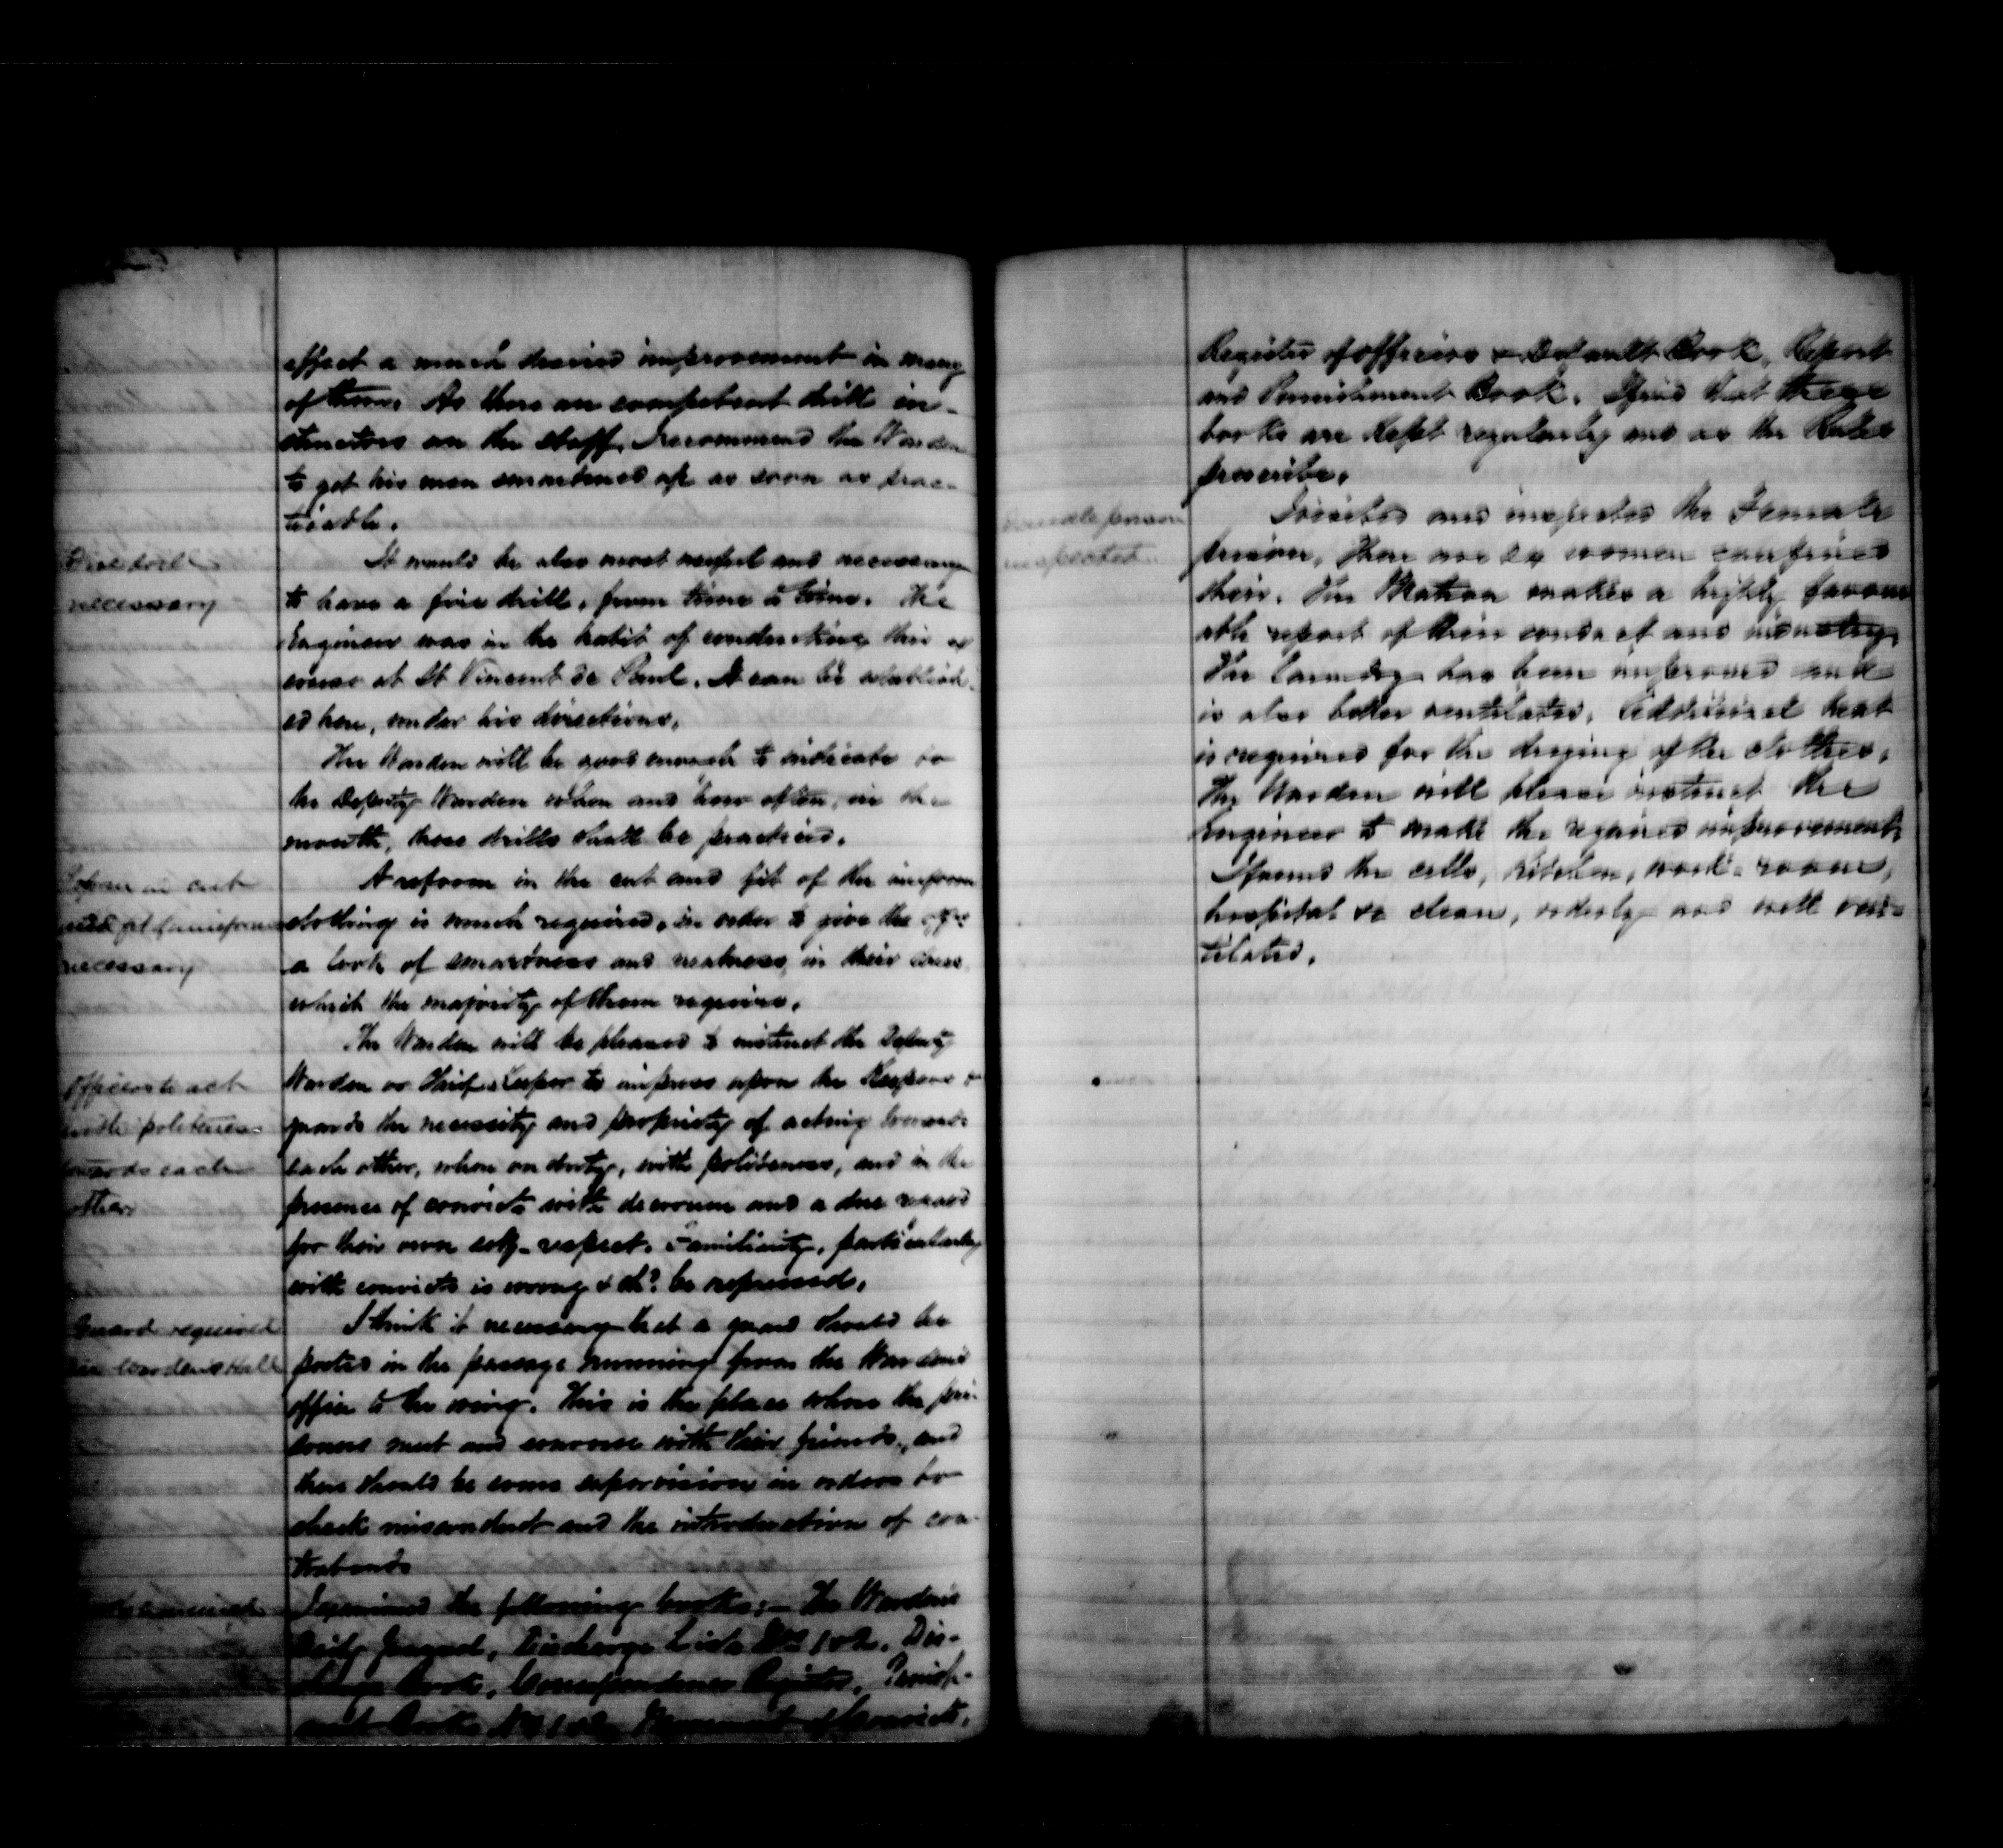 effect a much desired improvement in many
of them. As there are competent drill in-
structors on the staff, I recommend the Warden
to get his men smartened up as soon as prac-
ticable.
Fire drill
necessary
It would be also most useful and necessary
to have a fire drill, from time to time. The
Engineer was in the habit of conducting this ex
ercise at St Vincent de Paul. It can be establish-
ed here, under his directions.
The Warden will be good enough to indicate to
the Deputy Warden when and how often, in the
month, these drills shall be practiced.
Reform in cut
and fit of uniforms
necessary
A reform in the cut and fit of the uniform
clothing is much required, in order to give the
a look of smartness and neatness in their dress
which the majority of them require.
The Warden will be pleased to instruct the Deputy
Officers to act
with politeness
towards each
other
Warden or Chief Keeper to impress upon the Keepers &
guards the necessity and propriety of acting towards
each other, when on duty, with politeness, and in the
presence of convicts with decorum and a due regard
for their own self-respect. Familiarity, particularly
with convicts is wrong & shd. be repressed.
Guard required
in Warden's Hall
I think it necessary that a guard should be
posted in the passage running from the Warden's
office to the wing. This is the place where the pri-
soners meet and converse with their friends, and
there should be some supervision in order to
check misconduct and the introduction of con-
trabands
examined
I examined the following books:— The Warden's
Daily Journal, Discharge Lists Nos 1 & 2. Dis-
charge Book, Correspondence Register, Punish-
ment Books Nos 1 & 2, Movement of Convicts,
Register of officers & Default Book, Report
and Punishment Book. I find that these
books are kept regularly and as the Rules
prescribe.
Female prison
inspected
I visited and inspected the Female
prison. There are women confined
there. The Matron makes a highly favour
able report of their conduct and industry.
The laundry has been improved and
is also better ventilated. Additional heat
is required for the drying of the clothes.
The Warden will please instruct the
Engineer to make the required improvement.
I found the cells, kitchen, work-room,
hospital &c clean, orderly and well ven-
tilated.